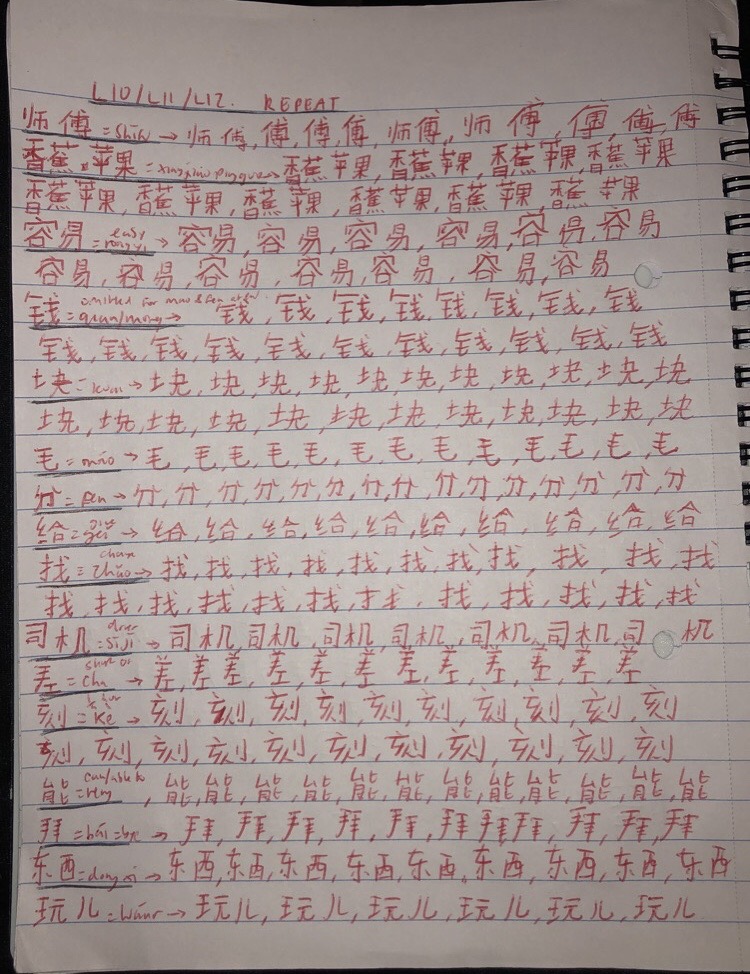 L10/L11/L12. REPEAT
师傅 = shifu → 师傅, 傅, 傅, 傅, 师傅, 师傅, 傅, 傅, 傅
香蕉, 苹果 = xiangjiao pingguo → 香蕉苹果, 香蕉苹果, 香蕉苹果, 香蕉苹果
香蕉苹果, 香蕉苹果, 香蕉苹果, 香蕉苹果, 香蕉苹果, 香蕉苹果
容易 = easy rongyi → 容易, 容易, 容易, 容易, 容易, 容易
容易, 容易, 容易, 容易, 容易, 容易, 容易
钱 = omitted for mao & fen → 钱, 钱, 钱, 钱, 钱, 钱, 钱, 钱
钱, 钱, 钱, 钱, 钱, 钱, 钱, 钱, 钱, 钱, 钱
块 = kuai → 块, 块, 块, 块, 块, 块, 块, 块, 块, 块, 块
块, 块, 块, 块, 块, 块, 块, 块, 块, 块, 块, 块
毛 = máo → 毛, 毛, 毛, 毛, 毛, 毛, 毛, 毛, 毛, 毛, 毛, 毛
分 = fen → 分, 分, 分, 分, 分, 分, 分, 分, 分, 分, 分, 分, 分, 分
给 = give gei → 给, 给, 给, 给, 给, 给, 给, 给, 给, 给
找 = zhǎo → 找, 找, 找, 找, 找, 找, 找, 找, 找, 找, 找
找, 找, 找, 找, 找, 找, 找, 找, 找, 找, 找, 找
司机 = sījī → 司机, 司机, 司机, 司机, 司机, 司机, 司机
差 = short of cha → 差, 差, 差, 差, 差, 差, 差, 差, 差, 差, 差, 差
刻 = ke → 刻, 刻, 刻, 刻, 刻, 刻, 刻, 刻, 刻, 刻
刻, 刻, 刻, 刻, 刻, 刻, 刻, 刻, 刻, 刻, 刻
能 = can/able to neng, 能, 能, 能, 能, 能, 能, 能, 能, 能, 能, 能, 能
拜 = bái = bye → 拜, 拜, 拜, 拜, 拜, 拜拜拜, 拜, 拜, 拜
东西 = dongxi → 东西, 东西, 东西, 东西, 东西, 东西, 东西, 东西, 东西
玩儿 = wánr → 玩儿, 玩儿, 玩儿, 玩儿, 玩儿, 玩儿